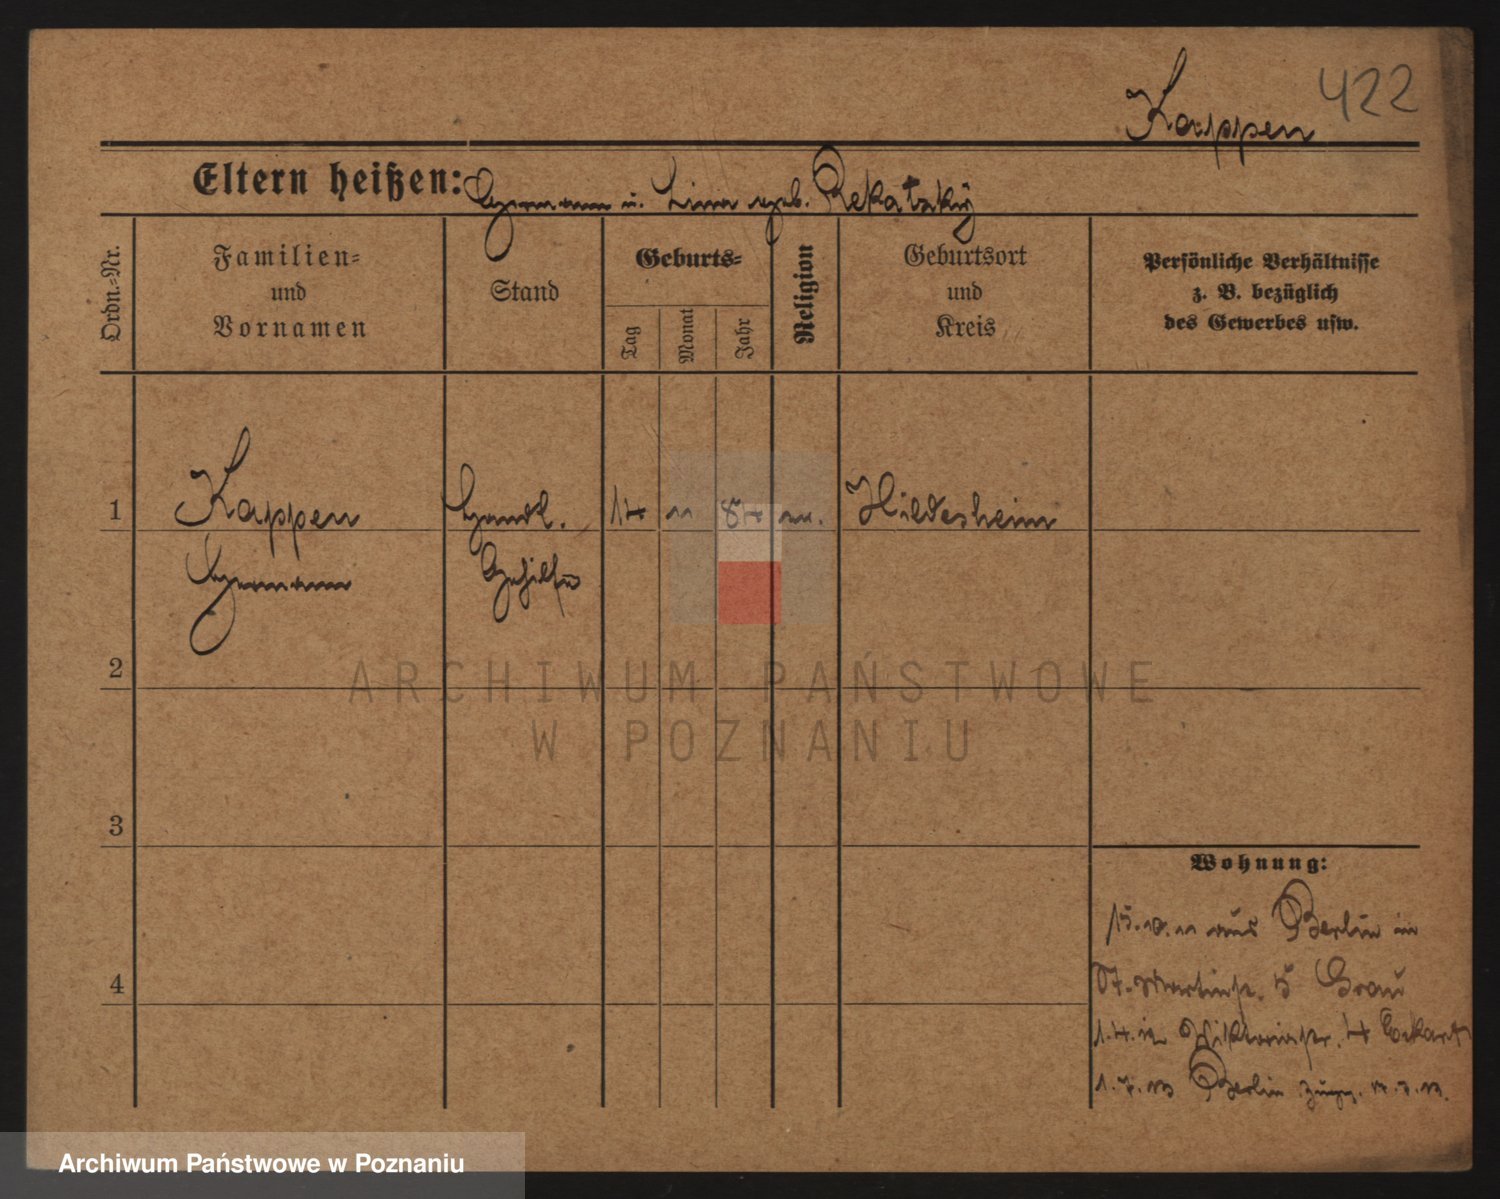 422
Kappen
Eltern heißen: Hermann u. Lina geb. Rekatzky
Ordn.-Nr.
Familien-
und
Vornamen
Stand
Geburts-
Tag
Monat
Jahr
Religion
Geburtsort
und
Kreis
Persönliche Verhältnisse
z. B. bezüglich
des Gewerbes usw.
1
Kappen
Hermann
Handl.
Gehilfe
14 11 84
Hildesheim
2
3
4
Wohnung:
15.10.11 aus Berlin in
St. Martinstr. 5
1.4.12 Viktoriastr. 4 Eckart
1.7.13 Berlin
ARCHIWUM PAŃSTWOWE
W POZNANIU
Archiwum Państwowe w Poznaniu